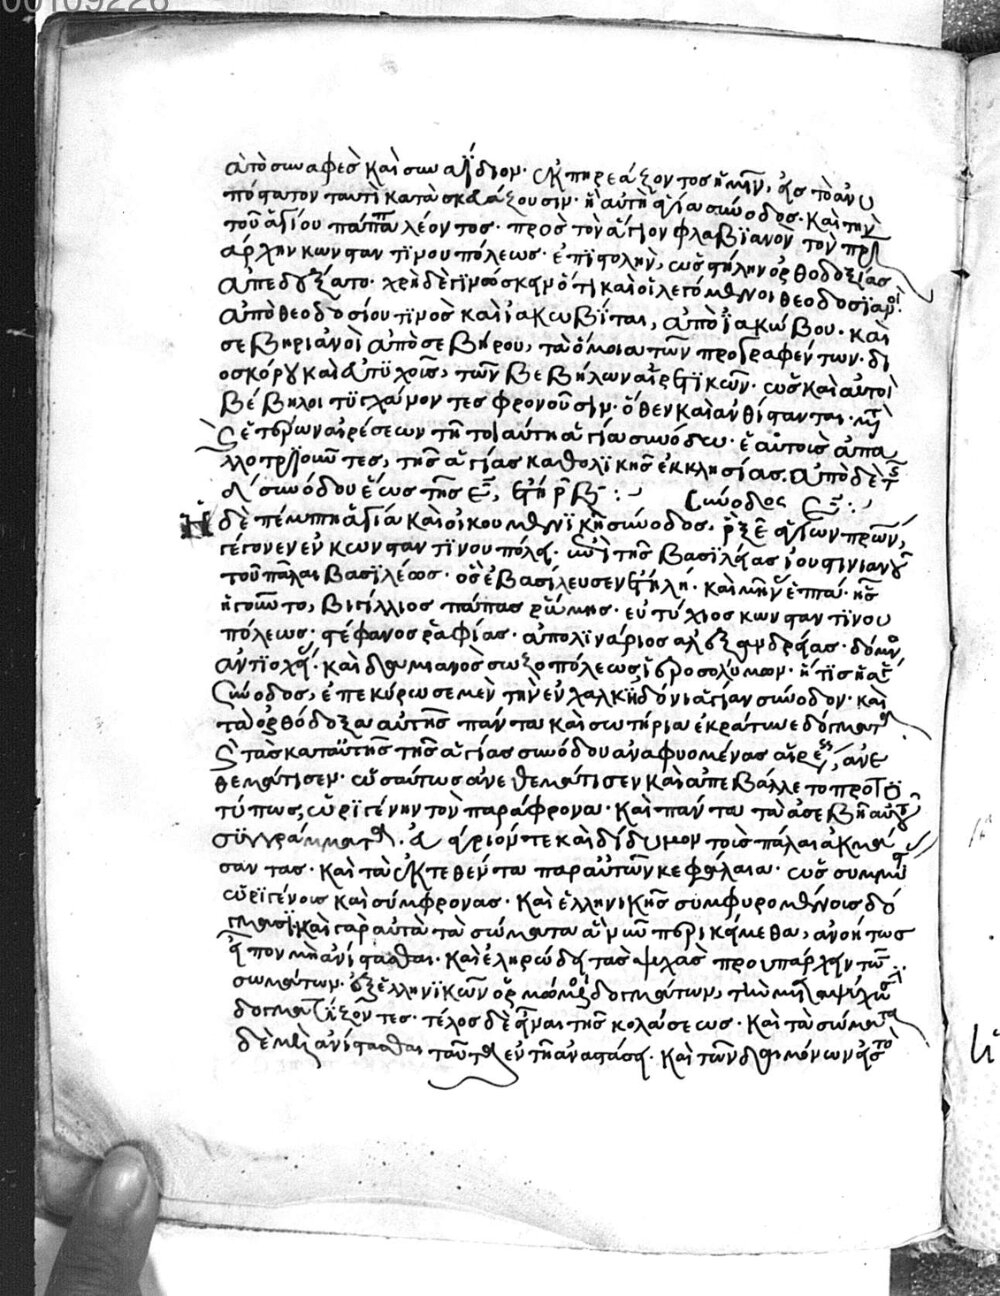 00109226
ἀπὸ συναφὲς καὶ συναΐδιον. ἐκπηρεάζοντος ἡμῖν, εἰς τὸ ἀνυ
πόστατον ταυτὶ κατασκευάζουσιν. ἡ αὐτὴ ἁγία σύνοδος. καὶ τὴν
τοῦ ἁγίου πάππα λέοντος. πρὸς τὸν ἅγιον φλαβϊανὸν τὸν πρι
άρχην κωνσταντϊνουπόλεως. ἐπϊστολὴν, ὡς στήλην ὀρθοδοξίας
ἀπεδέξατο. χρὴ δὲ γϊνώσκειν ὅτι καὶ οἱ λεγόμενοι θεοδοσϊανοὶ.
ἀπὸ θεοδοσίου τϊνος καὶ ϊακωβῖται, ἀπὸ ϊακώβου. καὶ
σεβηριανοὶ ἀπὸ σεβήρου, τὰ ὅμοια τῶν προγραφέντων. δι
οσκόρου καὶ εὐτϋχοῦς, τῶν βεβήλων αἱρετϊκῶν. ὡς καὶ αὐτοὶ
βέβηλοι τϋγχάνοντες φρονοῦσιν. ὅθεν καὶ ἀνθίστανται. μετὰ
καὶ ἑτέρων αἱρέσεων τῇ τοιαύτῃ ἁγία συνόδω. ἑαυτοὺς ἀπα
λλοτριοῦντες, τῆς ἁγίας καθολϊκῆς ἐκκλησίας. ἀπὸ δὲ τῆς
δ΄ συνόδου ἕως τῆς ε΄, ἔτη ρβ΄ :
Σύνοδος ε΄ :
Ἡ δὲ πέμπτη ἁγία καὶ οἰκουμενϊκὴ σύνοδος. ρξε ἁγίων πρων,
γέγονεν ἐν κωνσταντϊνουπόλει. ἐπὶ τῆς βασϊλείας ϊουστινιανοῦ
τοῦ πάλαι βασϊλέως. ὃς ἐβασίλευσεν ἔτη λη. καὶ μῆνας ἑπτά. ἧς
ἡγοῦντο, βιγίλλιος πάπας ῥώμης. εὐτύχιος κωνσταντϊνου
πόλεως. στέφανος ῥαφίας. ἀπολϊνάριος ἀλεξανδρείας. δόμνος
ἀντϊοχείας. καὶ δαμιανὸς σωζοπόλεως ἱεροσολύμων. ἥτϊς ἡ ἁγία
σύνοδος, ἐπεκύρωσε μὲν τὴν ἐν χαλκηδόνι ἁγίαν σύνοδον. καὶ
τὰ ὀρθόδοξα αὐτῆς πάντα καὶ σωτήρια ἐκράτυνε δόγματα
καὶ τὰς κατ' αὐτῆς τῆς ἁγίας συνόδου ἀναφυομένας αἱρέσεις, ἀνε
θεμάτισεν. ὡσαύτως ἀνεθεμάτισεν καὶ ἀπεβάλλετο πρωτο
τύπως, ὠρϊγένην τὸν παράφρονα. καὶ πάντα τὰ ἀσεβῆ αὐτοῦ
σϋγγράμματα. εὐάγριόν τε καὶ δίδυμον τοὺς πάλαι ἀκμά
σαντας. καὶ τὰ ἐκτεθέντα παρ' αὐτῶν κεφάλαια. ὡς συμμύστας
ὠρϊγένους καὶ σύμφρονας. καὶ ἑλληνικῆς συμφυρομένοις δό
γμασϊ καὶ γὰρ αὐτὰ τὰ σώματα ἃ νῦν περικείμεθα, ἀνοήτως
εἶπον μὴ ἀνίστασθαι. καὶ ἐληρώδει τὰς ψϋχὰς προυπάρχειν τῶν
σωμάτων. ἐξ ἑλληνϊκῶν ὁρμώμενοι δογμάτων, τὴν μετεμψύχωσιν
δογματίζοντες. τέλος δὲ εἶναι τῆς κολάσεως. καὶ τὰ σώματα
δὲ μὴ ἀνίστασθαι ταῦτα ἐν τῇ ἀναστάσει. καὶ τῶν δαιμόνων εἰς τὸ